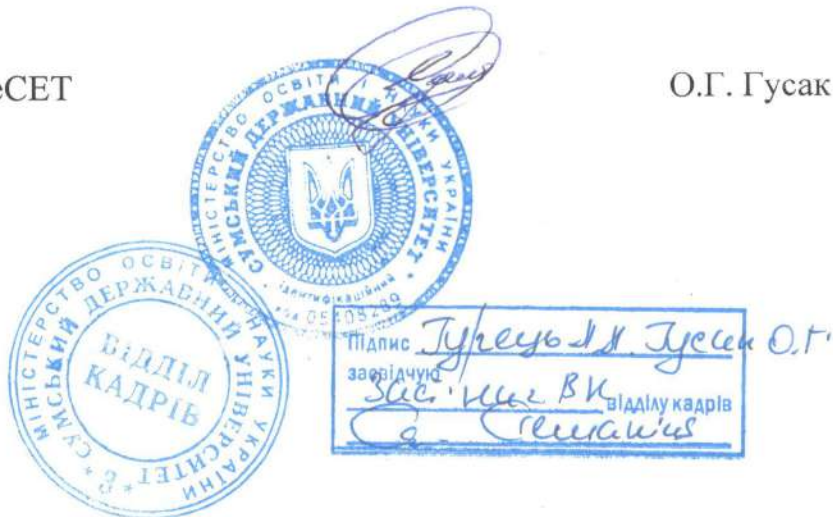 еСЕТ
О.Г. Гусак
МІНІСТЕРСТВО ОСВІТИ І НАУКИ УКРАЇНИ
* СУМСЬКИЙ ДЕРЖАВНИЙ УНІВЕРСИТЕТ *
ідентифікаційний
код 05408289
МІНІСТЕРСТВО ОСВІТИ І НАУКИ УКРАЇНИ
СУМСЬКИЙ ДЕРЖАВНИЙ УНІВЕРСИТЕТ
ВІДДІЛ
КАДРІВ
Підпис Гусак О.Г.
засвідчую
відділу кадрів